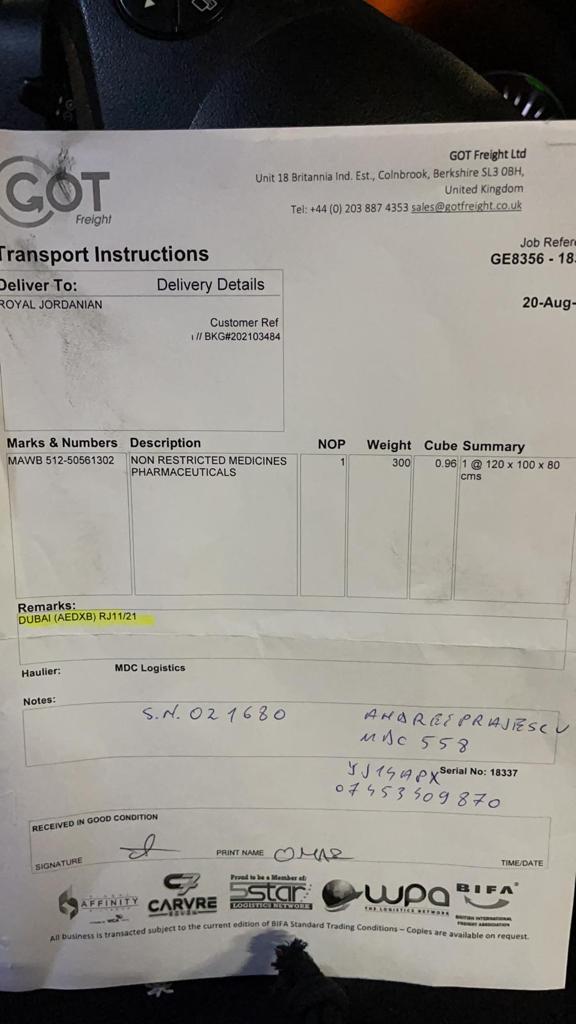 GOT
Freight
GOT Freight Ltd
Unit 18 Britannia Ind. Est., Colnbrook, Berkshire SL3 0BH,
United Kingdom
Tel: +44 (0) 203 887 4353 sales@gotfreight.co.uk
Transport Instructions
Job Refere
GE8356 - 183
Deliver To:
Delivery Details
20-Aug-
ROYAL JORDANIAN
Customer Ref
// BKG#202103484
Marks & Numbers Description NOP Weight Cube Summary
MAWB 512-50561302 NON RESTRICTED MEDICINES 1 300 0.96 1 @ 120 x 100 x 80
PHARMACEUTICALS cms
Remarks:
DUBAI (AEDXB) RJ11/21
Haulier: MDC Logistics
Notes:
S.N. 021680
ANDREI PRAJESCU
MDC 558
Serial No: 18337
07453409870
RECEIVED IN GOOD CONDITION
SIGNATURE
PRINT NAME OMAR
TIME/DATE
AFFINITY
CARVRE
Proud to be a Member of:
5star
LOGISTICS NETWORK
wpa
THE LOGISTICS NETWORK
BIFA
BRITISH INTERNATIONAL
FREIGHT ASSOCIATION
All business is transacted subject to the current edition of BIFA Standard Trading Conditions – Copies are available on request.